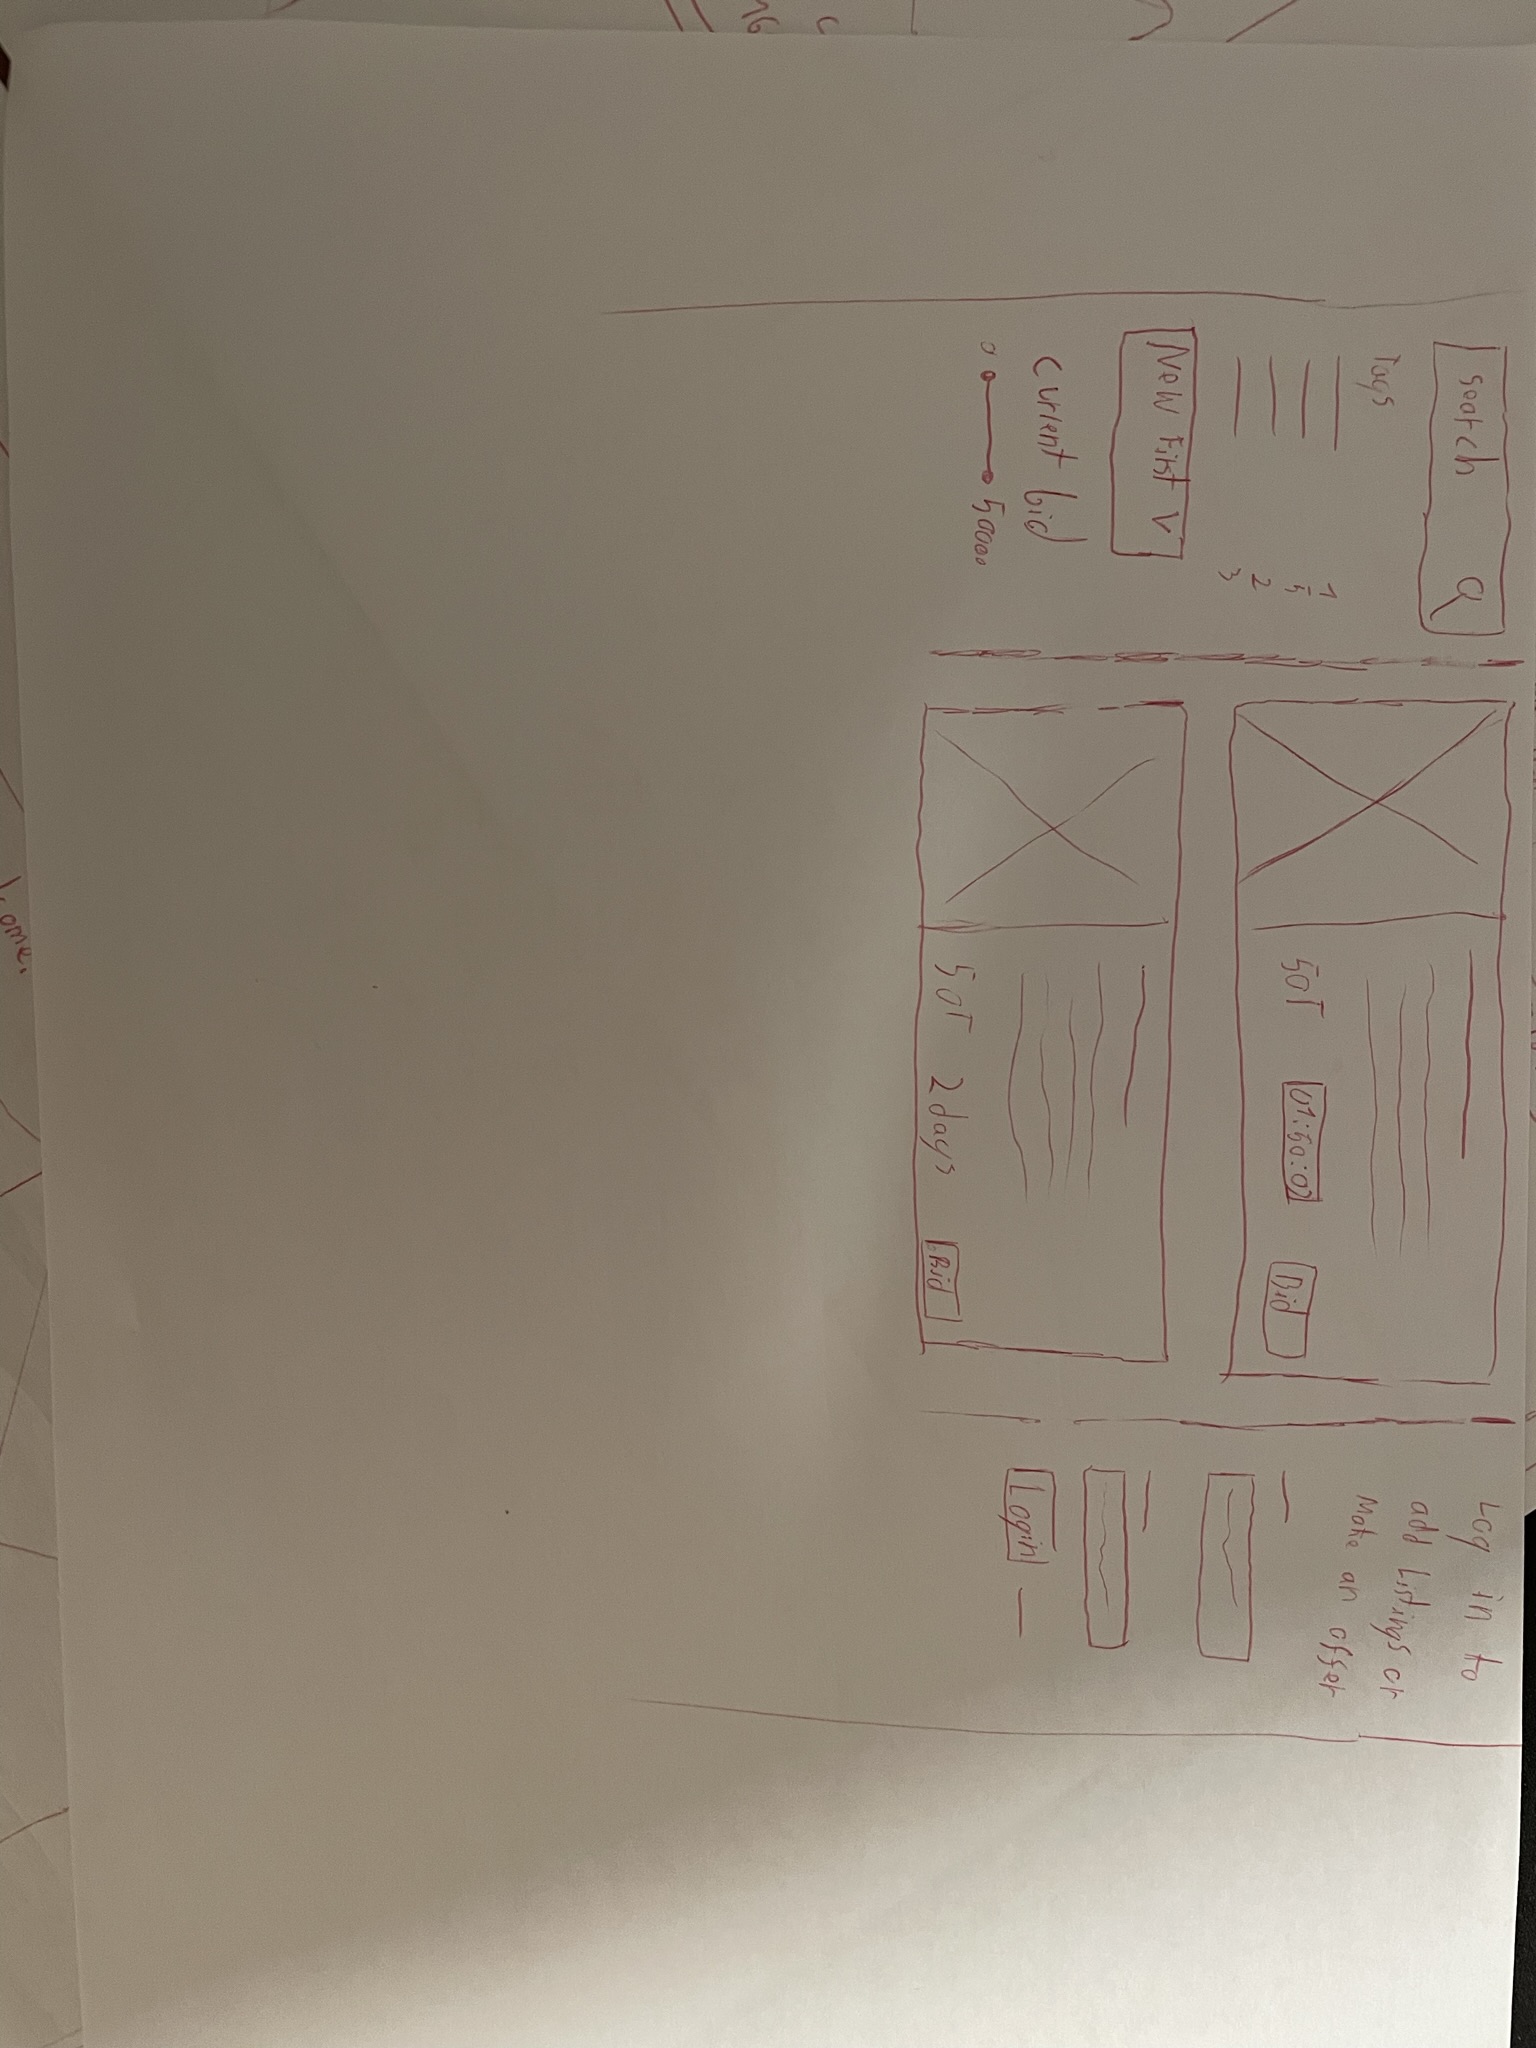 Search
Tags
1
5
2
3
New First V
Current bid
0 50000
50T 01:50:02 Bid
50T 2 days Bid
Log in to
add Listings or
Make an offer
Login
ome.